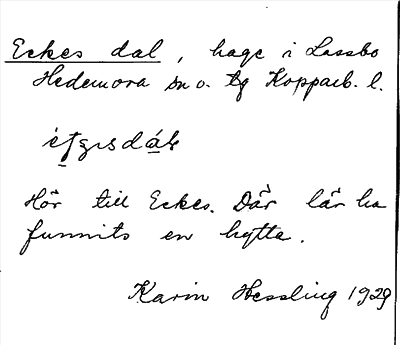 Eckes dal, hage i Lassbo
Hedemora sn o. tg Kopparb. l.
Hör till Eckes. Där lär ha
funnits en hytta.
Karin Hessling 1929